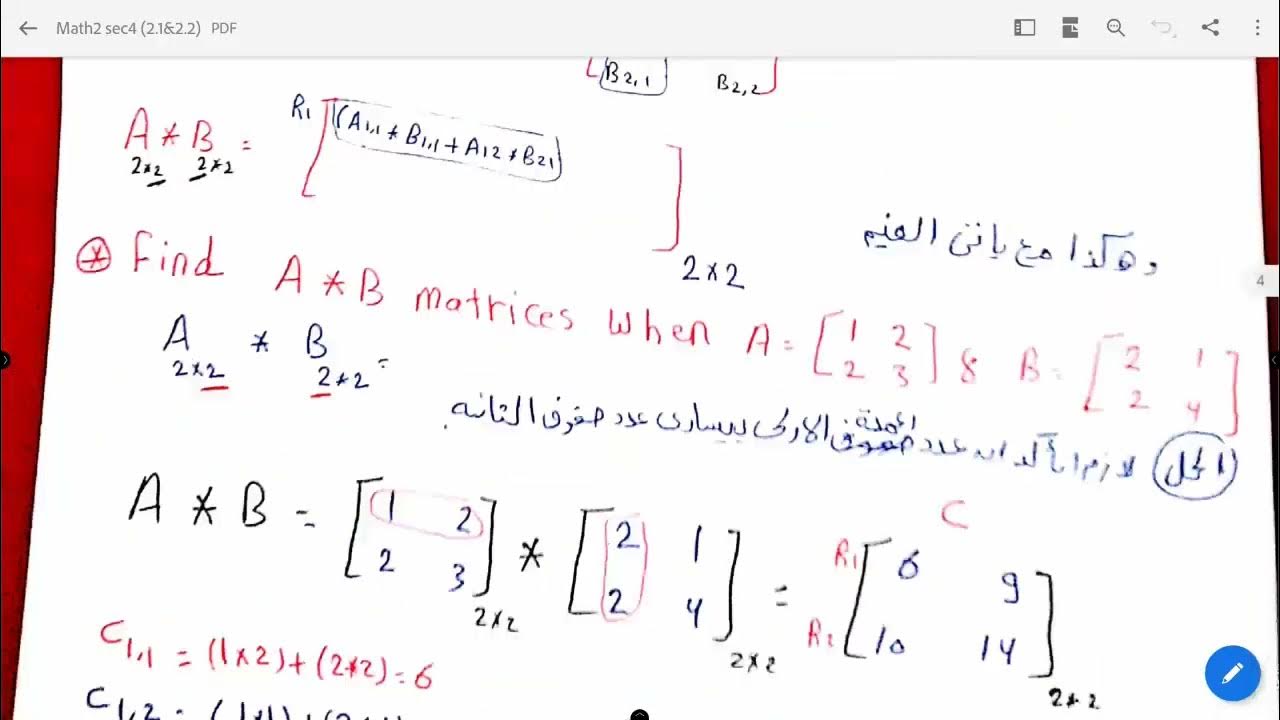 Math2 sec4 (2.1&2.2) PDF
B2,1 B2,2
A * B =
2*2 2*2
R1 (A1,1 * B1,1 + A12 * B21)
2*2
وهكذا مع باقى القيم
4
* Find A * B matrices when A = [1 2 & B = [2 1
2 3] 2 4]
A * B =
2*2 2*2
الحل لازم أتأكد ان عدد أعمدة صفوف الاولى بيساوى عدد صفوف التانيه.
C
A * B = [1 2 * [2 1 = R1 [6 9
2 3] 2 4] R2 10 14]
2*2 2*2 2*2
C1,1 = (1*2)+(2*2)=6
C1,2 =